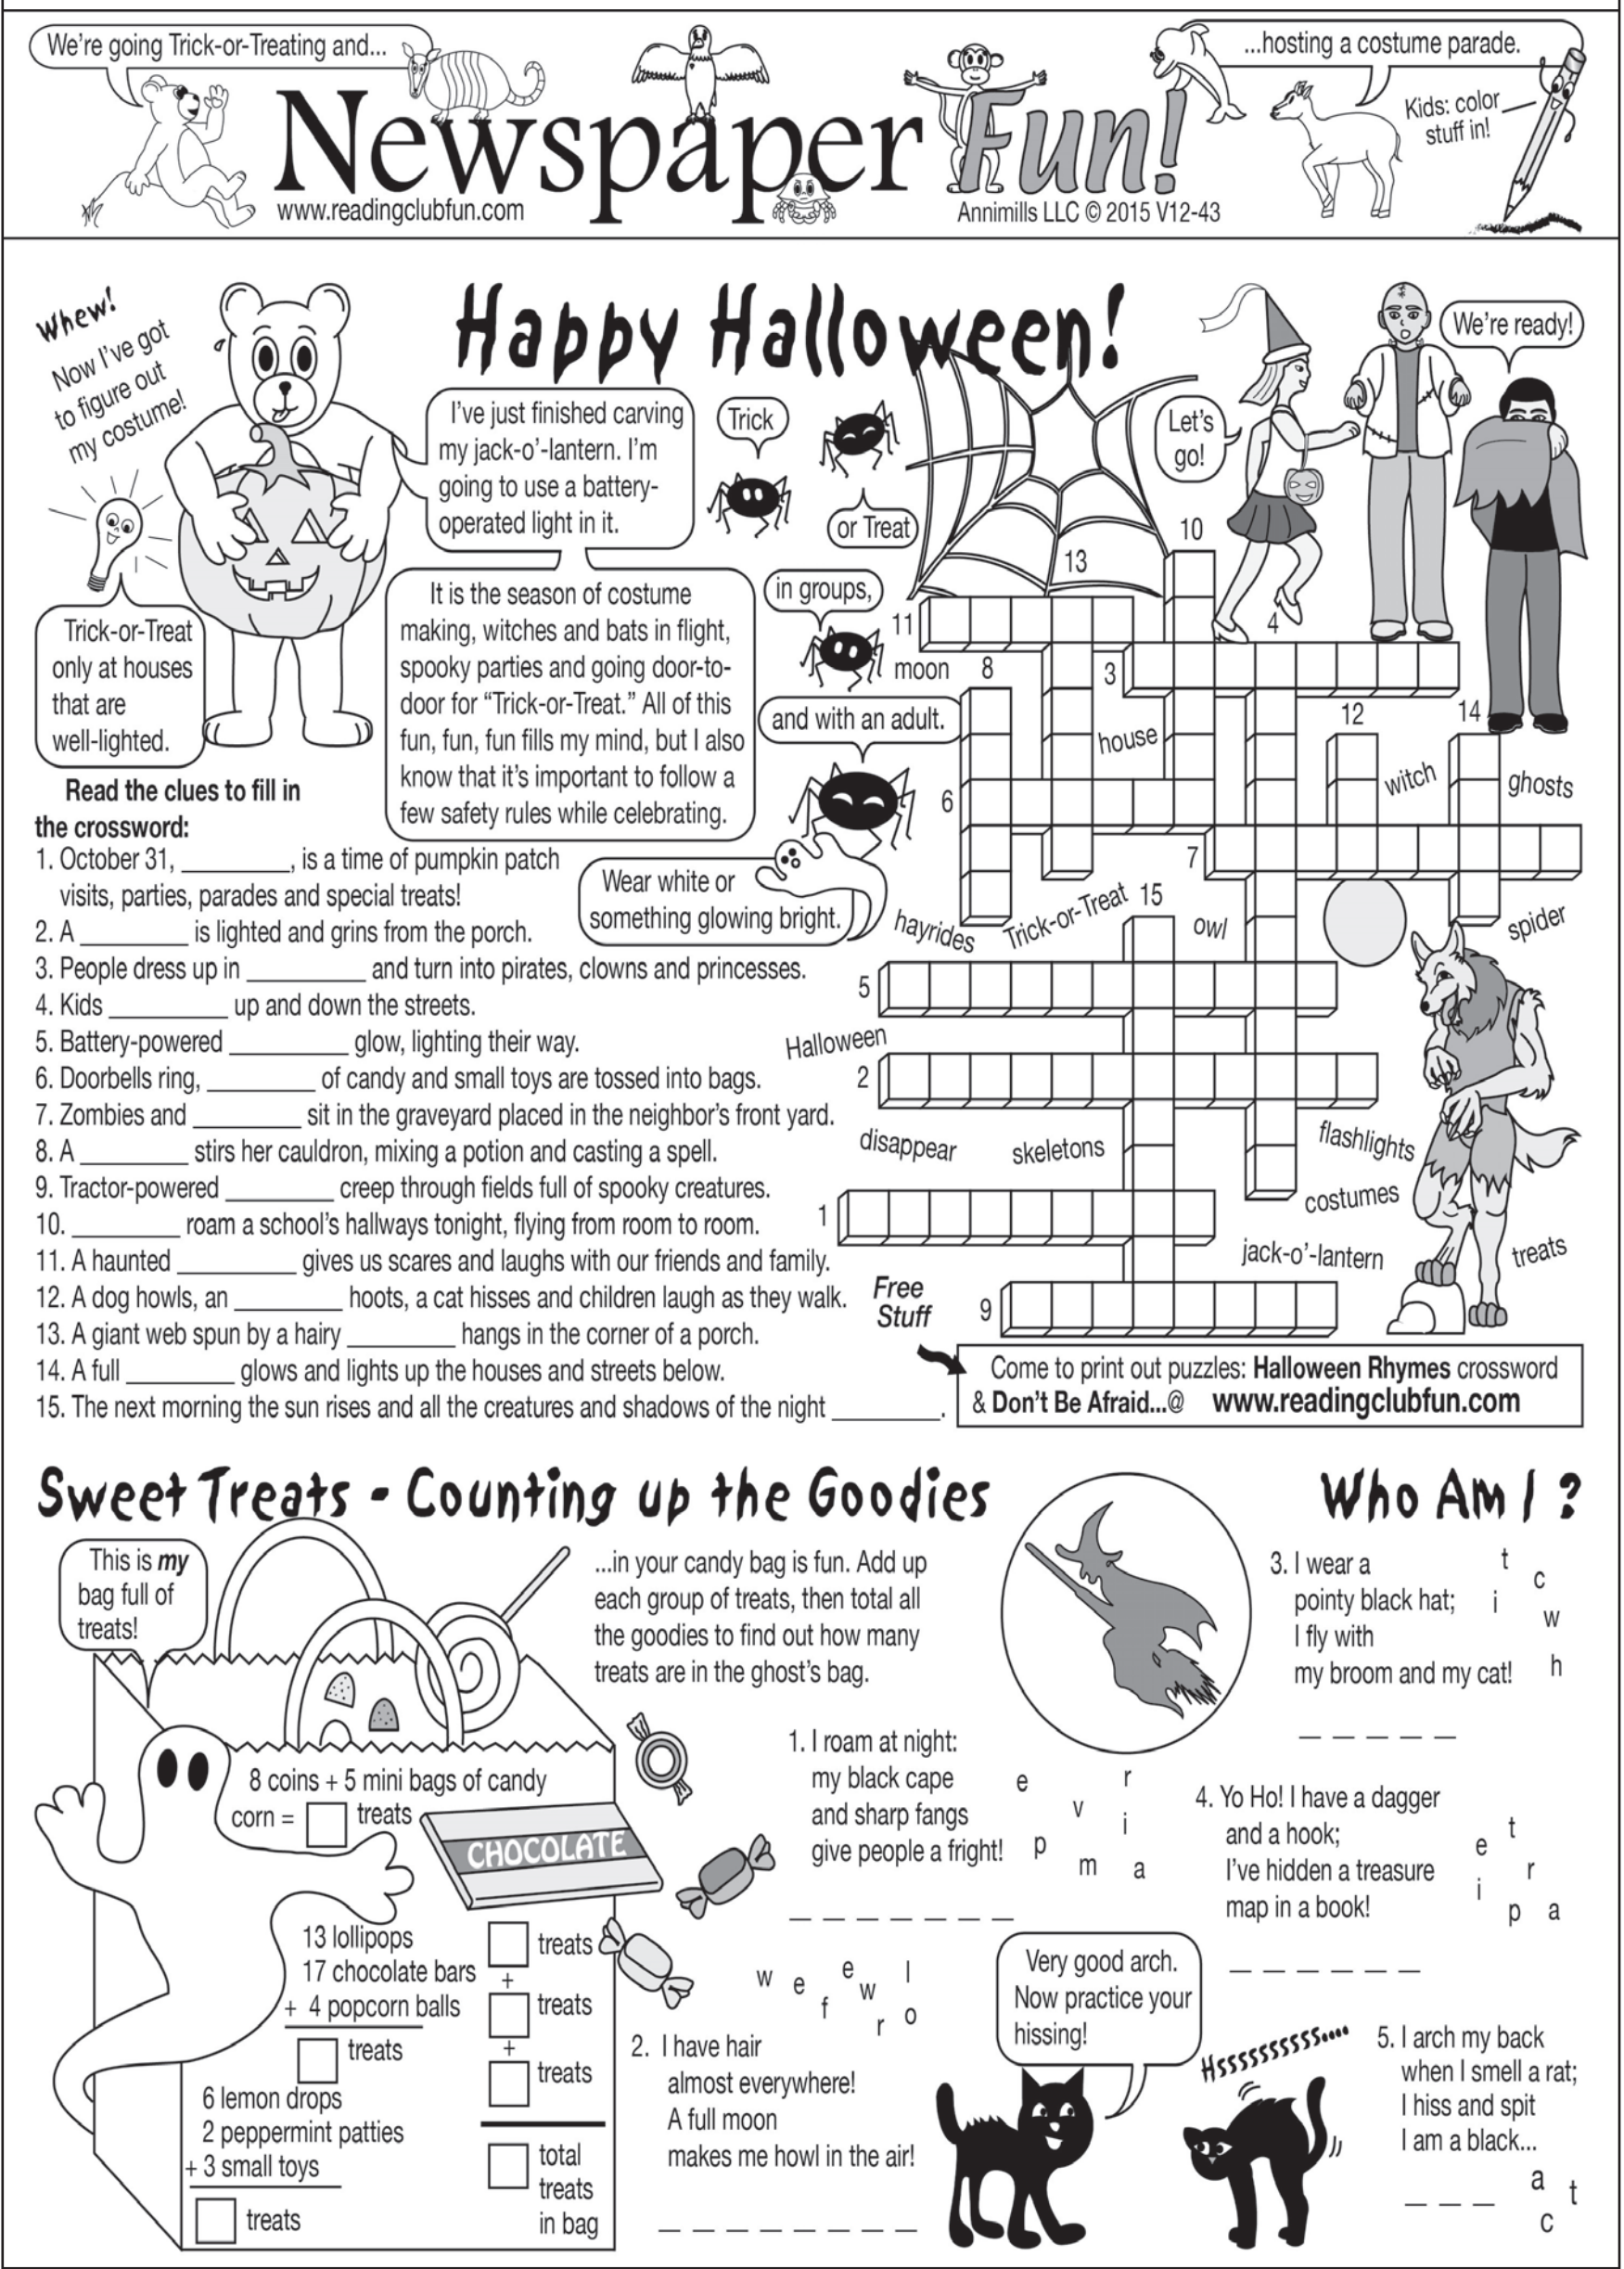 We're going Trick-or-Treating and...
Newspaper Fun!
...hosting a costume parade.
Kids: color
stuff in!
www.readingclubfun.com
Annimills LLC © 2015 V12-43
Happy Halloween!
Whew!
Now I've got
to figure out
my costume!
I've just finished carving
my jack-o'-lantern. I'm
going to use a battery-
operated light in it.
Trick
or Treat
in groups,
and with an adult.
Let's
go!
We're ready!
Trick-or-Treat
only at houses
that are
well-lighted.
It is the season of costume
making, witches and bats in flight,
spooky parties and going door-to-
door for “Trick-or-Treat.” All of this
fun, fun, fun fills my mind, but I also
know that it's important to follow a
few safety rules while celebrating.
Wear white or
something glowing bright.
Read the clues to fill in
the crossword:
1. October 31, _________, is a time of pumpkin patch
visits, parties, parades and special treats!
2. A _________ is lighted and grins from the porch.
3. People dress up in __________ and turn into pirates, clowns and princesses.
4. Kids __________ up and down the streets.
5. Battery-powered __________ glow, lighting their way.
6. Doorbells ring, _________ of candy and small toys are tossed into bags.
7. Zombies and _________ sit in the graveyard placed in the neighbor's front yard.
8. A _________ stirs her cauldron, mixing a potion and casting a spell.
9. Tractor-powered _________ creep through fields full of spooky creatures.
10. _________ roam a school's hallways tonight, flying from room to room.
11. A haunted __________ gives us scares and laughs with our friends and family.
12. A dog howls, an _________ hoots, a cat hisses and children laugh as they walk.
13. A giant web spun by a hairy _________ hangs in the corner of a porch.
14. A full _________ glows and lights up the houses and streets below.
15. The next morning the sun rises and all the creatures and shadows of the night _________.
10
13
11
4
moon
8
3
12
14
house
witch
ghosts
6
7
hayrides
Trick-or-Treat
15
owl
spider
5
Halloween
2
disappear
skeletons
flashlights
costumes
1
jack-o'-lantern
treats
9
Free
Stuff
Come to print out puzzles: Halloween Rhymes crossword
& Don't Be Afraid...@ www.readingclubfun.com
Sweet Treats - Counting up the Goodies
This is my
bag full of
treats!
...in your candy bag is fun. Add up
each group of treats, then total all
the goodies to find out how many
treats are in the ghost's bag.
8 coins + 5 mini bags of candy
corn = treats
CHOCOLATE
13 lollipops
17 chocolate bars
+ 4 popcorn balls
treats
6 lemon drops
2 peppermint patties
+ 3 small toys
treats
treats
+
treats
+
treats
total
treats
in bag
Who Am I ?
1. I roam at night:
my black cape
and sharp fangs
give people a fright!
e r
v i
p m a
_ _ _ _ _ _ _
w e e w l
f r o
2. I have hair
almost everywhere!
A full moon
makes me howl in the air!
_ _ _ _ _ _ _ _
3. I wear a
pointy black hat;
I fly with
my broom and my cat!
t c
i w
h
_ _ _ _ _
4. Yo Ho! I have a dagger
and a hook;
I've hidden a treasure
map in a book!
e t
i r
p a
_ _ _ _ _ _
Very good arch.
Now practice your
hissing!
Hssssssssss....
5. I arch my back
when I smell a rat;
I hiss and spit
I am a black...
_ _ _
a t
c